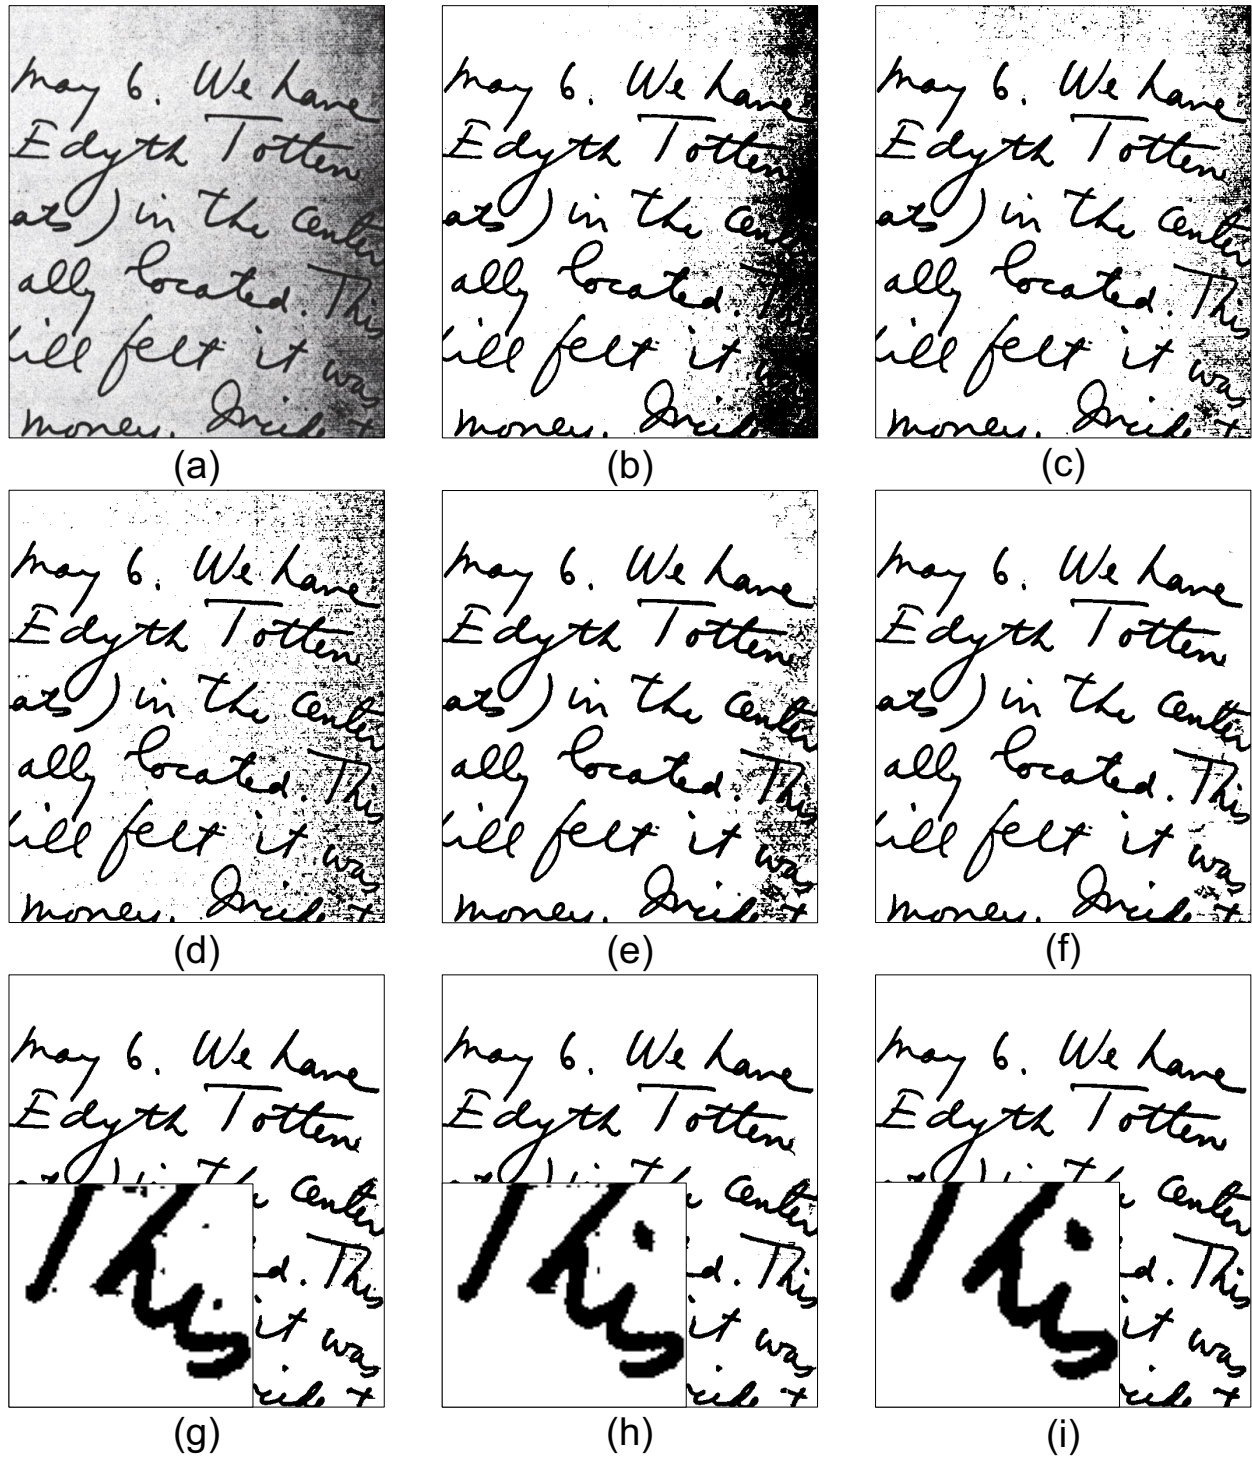 May 6. We have
Edyth Totten
ats) in the center
ally located. This
ill felt it was
money. Incide t
(a)
May 6. We have
Edyth Totten
ats) in the cente
ally located. This
ill felt it was
money. Incide t
(b)
May 6. We have
Edyth Totten
ats) in the center
ally located. This
ill felt it was
money. Incide t
(c)
May 6. We have
Edyth Totten
ats) in the center
ally located. This
ill felt it was
money. Incide t
(d)
May 6. We have
Edyth Totten
ats) in the center
ally located. This
ill felt it was
money. Incide t
(e)
May 6. We have
Edyth Totten
ats) in the center
ally located. This
ill felt it was
money. Incide t
(f)
May 6. We have
Edyth Totten
center
d. This
it was
cide t
This
(g)
May 6. We have
Edyth Totten
center
d. This
it was
cide t
This
(h)
May 6. We have
Edyth Totten
center
d. This
it was
cide t
This
(i)